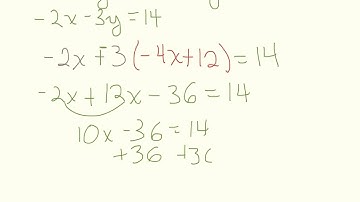 -2x-3y=14
-2x-3(-4x+12)=14
-2x+12x-36=14
10x-36=14
+36 +36